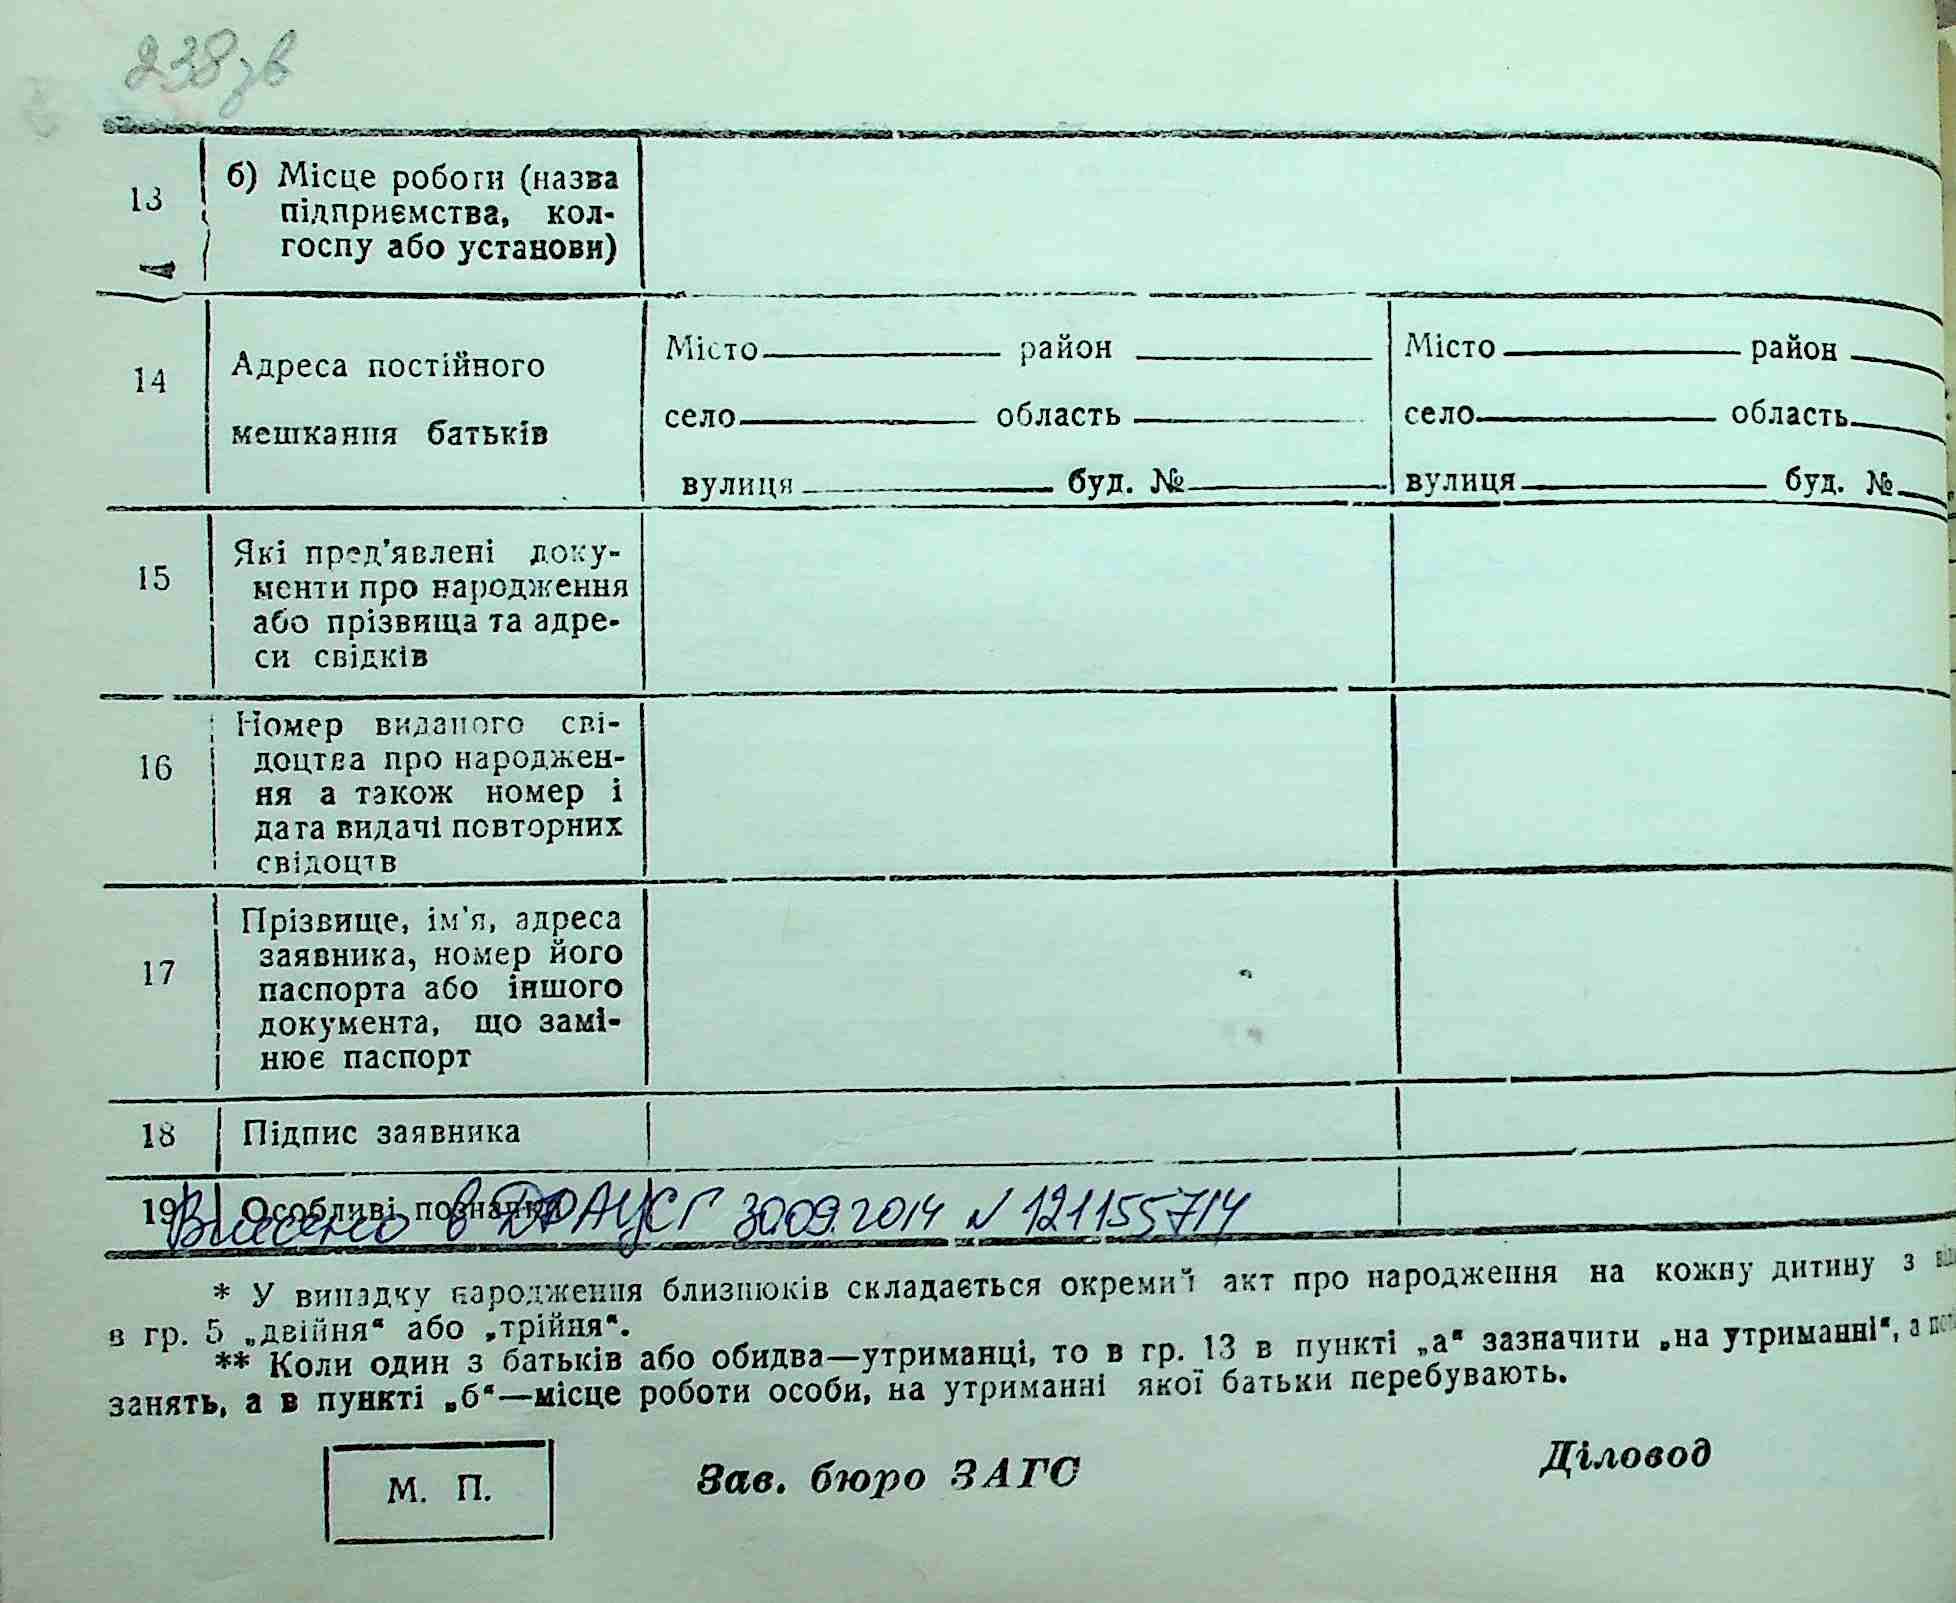 238зв
13 б) Місце роботи (назва
підприємства, кол-
госпу або установи)
14 Адреса постійного
мешкання батьків
Місто район Місто район
село область село область
вулиця буд. № вулиця буд. №
15 Які пред'явлені доку-
менти про народження
або прізвища та адре-
си свідків
16 Номер виданого сві-
доцтва про народжен-
ня а також номер і
дата видачі повторних
свідоцтв
17 Прізвище, ім'я, адреса
заявника, номер його
паспорта або іншого
документа, що замі-
нює паспорт
18 Підпис заявника
19 Особливі познаки
Внесено в ДРАЦСГ 30.09.2014 N 121155714
* У випадку народження близнюків складається окремий акт про народження на кожну дитину з
в гр. 5 „двійня“ або „трійня“.
** Коли один з батьків або обидва—утриманці, то в гр. 13 в пункті „а“ зазначити „на утриманні“, а
занять, а в пункті „б“—місце роботи особи, на утриманні якої батьки перебувають.
М. П.
Зав. бюро ЗАГС
Діловод